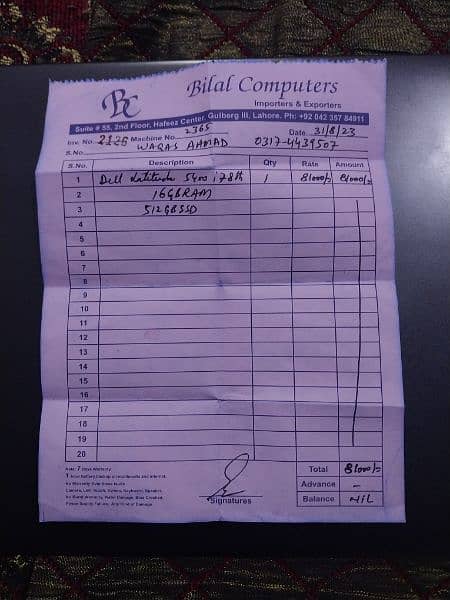 BC
Bilal Computers
Importers & Exporters
Suite # 55, 2nd Floor, Hafeez Center, Gulberg III, Lahore. Ph: +92 042 357 84911
Inv. No. 2126 Machine No. 2365 Date 31/8/23
S.No. WAQAS AHMAD 0317-4439507
S.No. Description Qty Rate Amount
1 Dell Latitude 5400 i7 8th 1 81000/- 81000/-
2 16GB RAM
3 512GB SSD
4
5
6
7
8
9
10
11
12
13
14
15
16
17
18
19
20
Note: 7 Days Warranty
Total 81000/-
Advance -
Balance NIL
Signatures